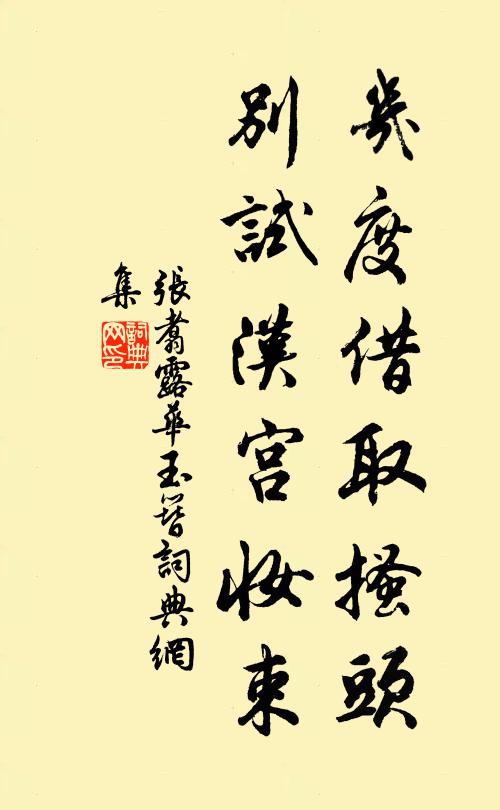 幾度借取搔頭
別試漢宮妝束
張翥露華玉簪詞典網
集
詞典
網印